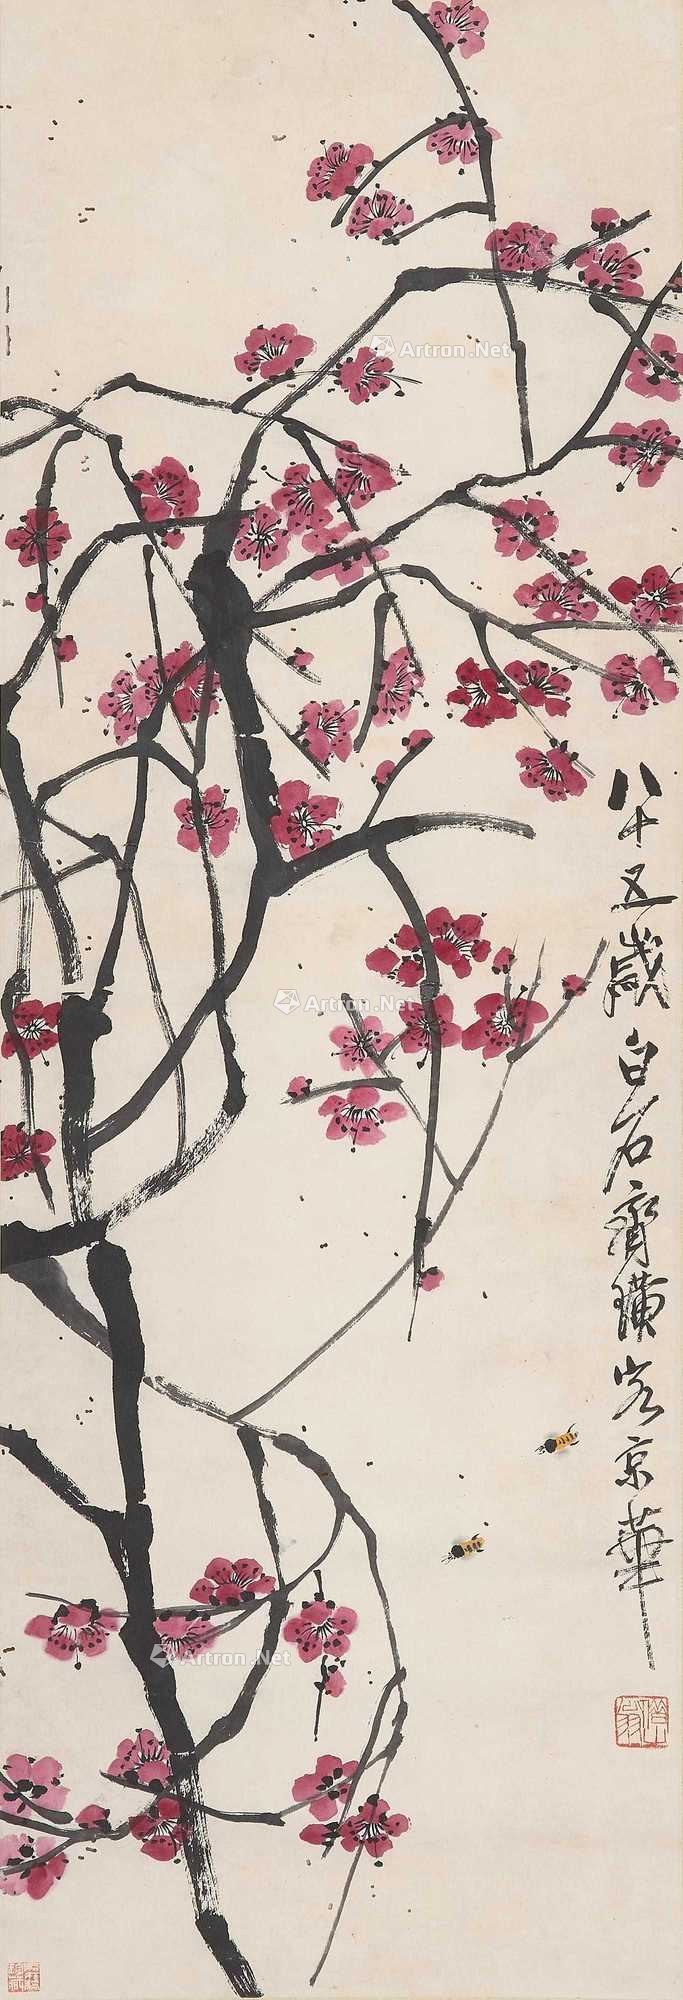 Artron.Net
八十五歲白石齊璜客京華
Artron.Net
Artron.Net